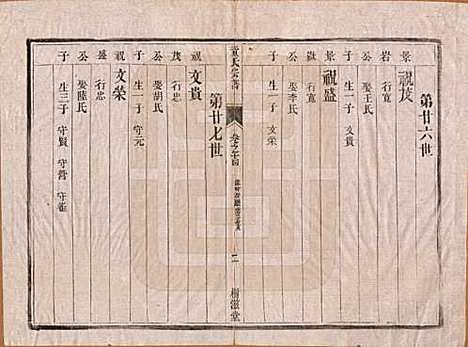 第廿六世
景岩公子 視茂
行寬
娶王氏
生一子 文貴
景嶽公子 視盛
行寬
娶李氏
生一子 文荣
董氏宗譜
卷之七十四
二
樹滋堂
第廿七世
視茂公子 文貴
行忠
娶胡氏
生一子 守元
視公子 文荣
行忠
娶陸氏
生三子 守賢 守晉 守雀